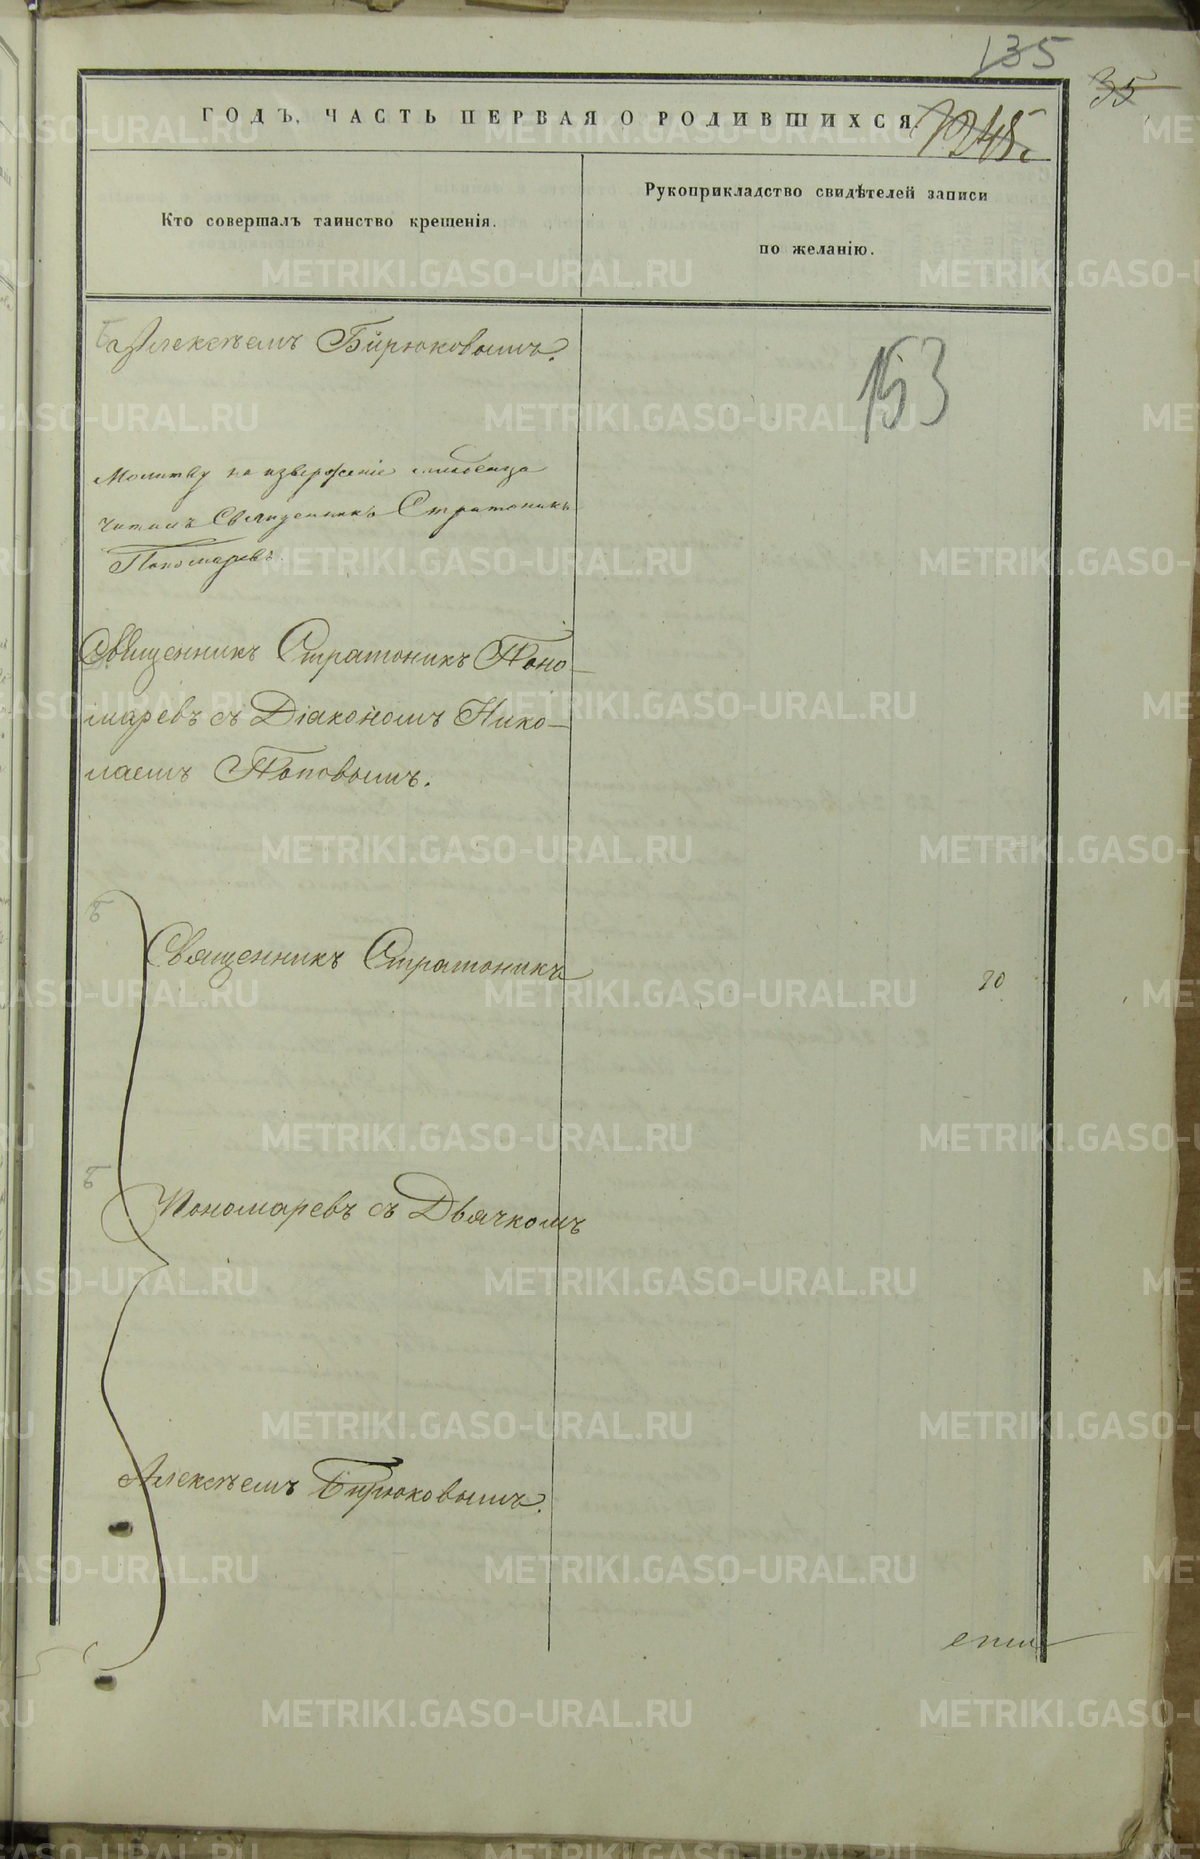 135
35
ГОДЪ, ЧАСТЬ ПЕРВАЯ О РОДИВШИХСЯ
Кто совершалъ таинство крещенія.
Рукоприкладство свидѣтелей записи
по желанію.
Алексѣемъ Бирюковымъ.
153
Молитву на извержение младенца
читалъ Священникъ Стратоникъ
Пономаревъ.
Священникъ Стратоникъ Поно-
маревъ съ Діакономъ Нико-
лаемъ Поповымъ.
Священникъ Стратоникъ
20
Пономаревъ съ Дьячкомъ
Алексѣемъ Бирюковымъ.
METRIKI.GASO-URAL.RU